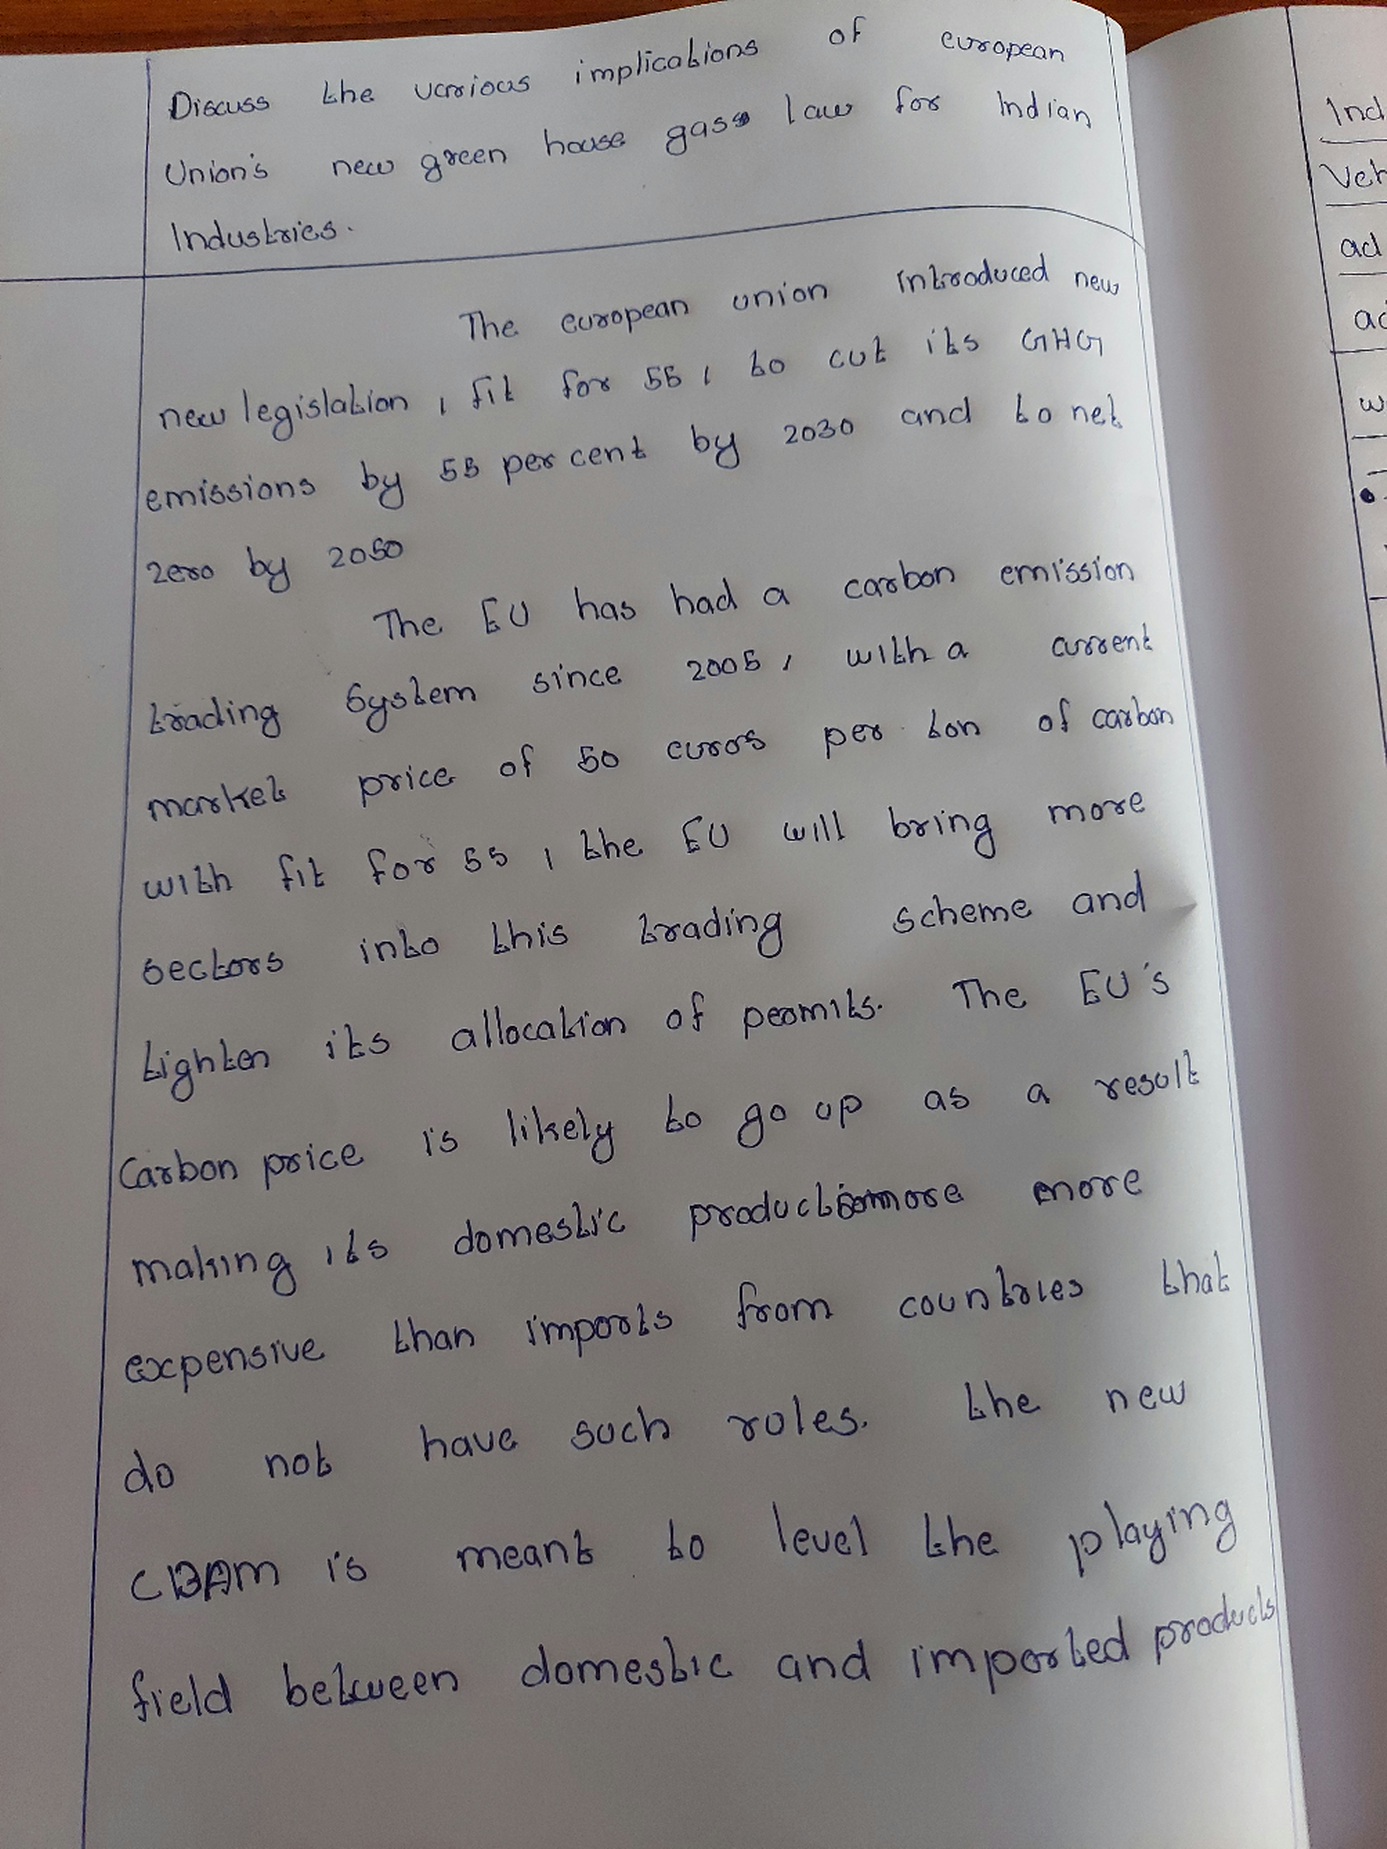 Discuss the various implications of european
Union's new green house gas law for Indian
Industries.
The european union introduced new
new legislation, fit for 55, to cut its GHG
emissions by 55 per cent by 2030 and to net
zero by 2050
The EU has had a carbon emission
trading system since 2005, with a current
market price of 50 euros per ton of carbon
with fit for 55, the EU will bring more
sectors into this trading scheme and
tighten its allocation of permits. The EU's
Carbon price is likely to go up as a result
making its domestic production more more
expensive than imports from countries that
do not have such rules. the new
CBAM is meant to level the playing
field between domestic and imported products
Ind
Veh
ad
ad
w